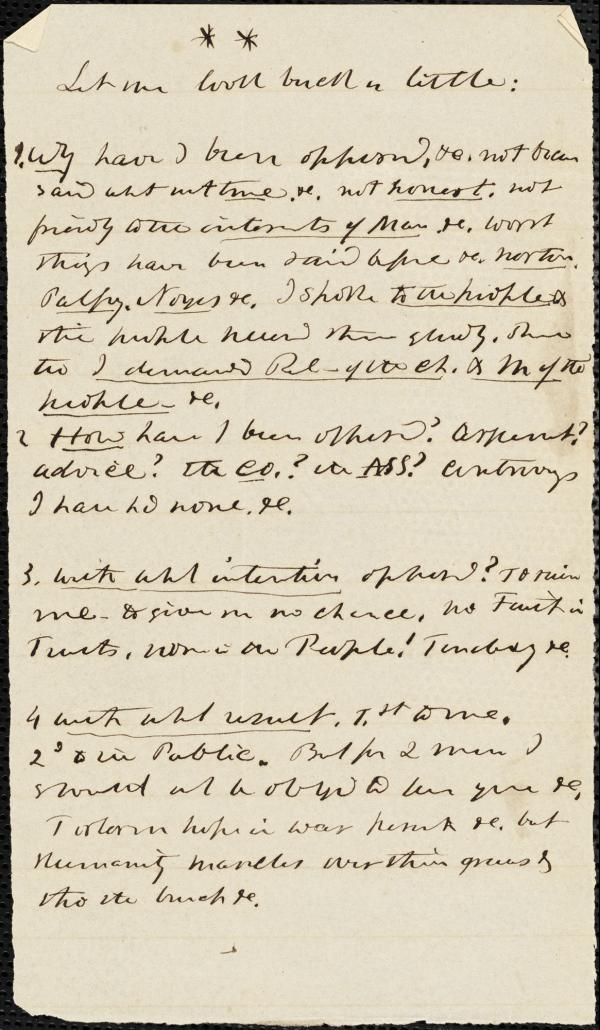 * *
Let me look back a little:
1. Why have I been opposed, &c. not been
said what not true, &c. not honest. not
friendly to the interests of Man &c. worst
things have been said before &c. Norton.
Palfry. Noyes &c. I spoke to the people &
the people heard them gladly.
too I demanded Rel— of the Ch. & M of the
people — &c.
2 How have I been opposed? Argument?
advice? the Co.? the ASS? Controversy
I have had none. &c.
3. with what intention opposed? To ruin
me — to give me no chance. no Faith in
Truth, none in the People! &c.
4 with what result. 1.st to me.
2d to the Public. But for 2 men I
should not be obliged to leave you &c.
hope in was &c. but
Humanity marches over their graves &
tho the &c.